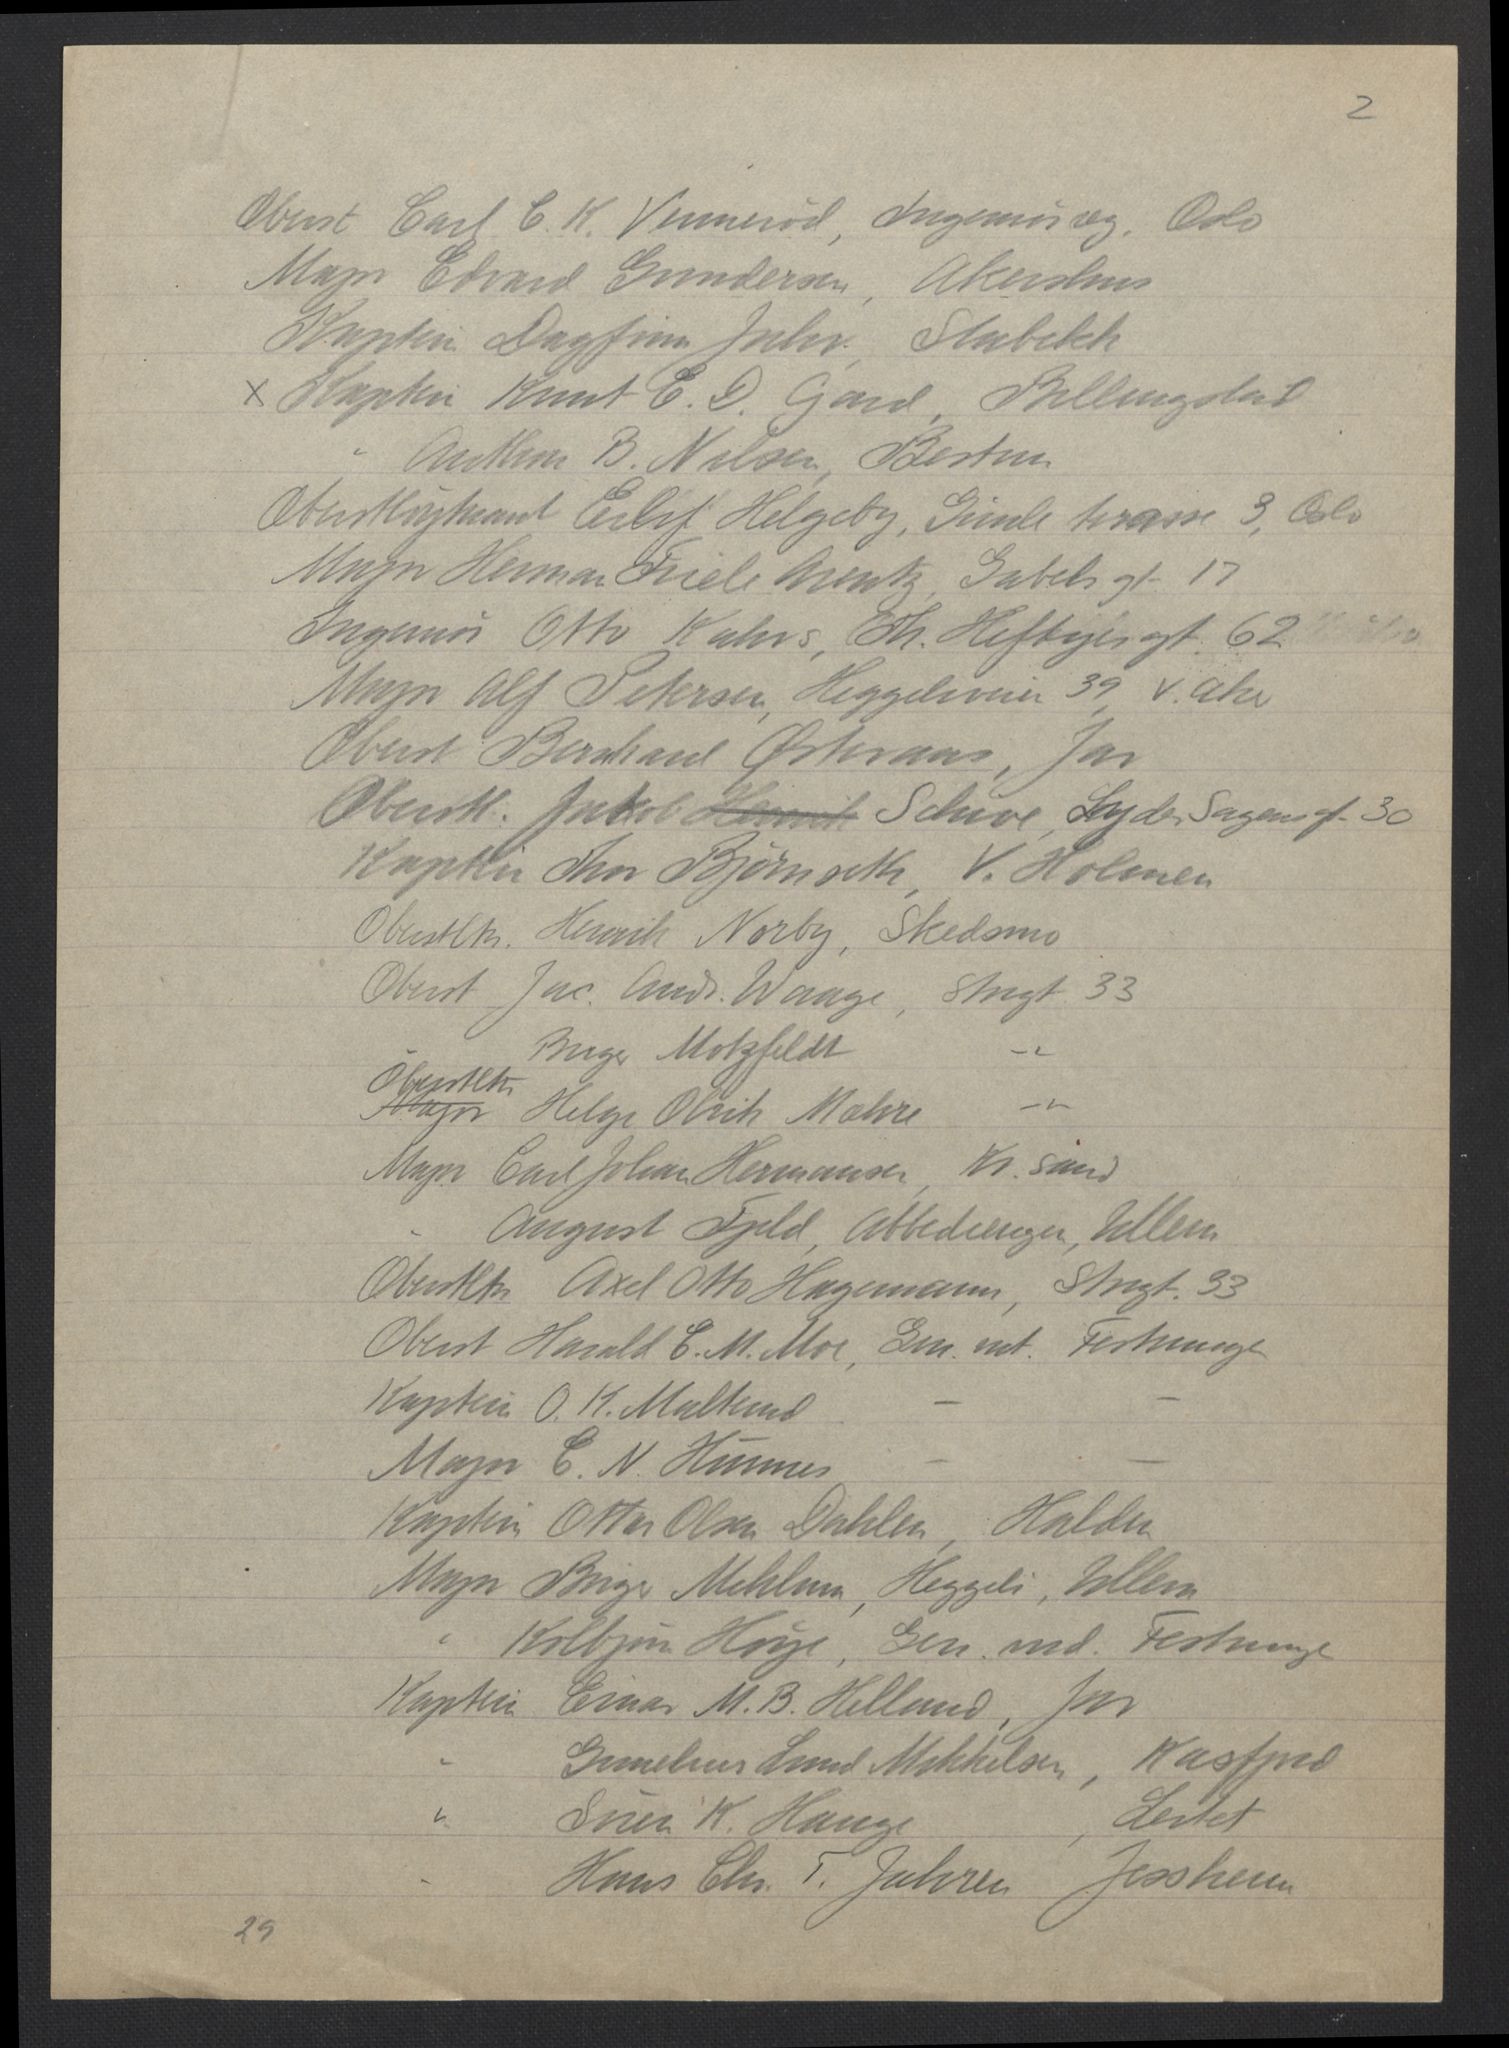 2
Oberst Carl C. K. Vennerød, Ingeniørv., Oslo
Major Edvard Gundersen, Akershus
Kaptein Dagfinn Juhr, Stabekk
x Kaptein Knut E. D. Gard, Billingstad
" Anthon B. Nilsen, Bestun
Oberstløytnant Eilif Helgeby, Gimle terrasse 3, Oslo
Major Herman Friele Arentz, Gabels gt. 17
Ingeniør Otto Kahrs, Th. Heftyes gt. 62
Major Alf Petersen, Heggeliveien 39, V. Aker
Oberst Bernhard Østeraas, Jar
Oberstl. Jakob Henrik Schive, Lyder Sagens gt. 30
Kaptein Thor Bjørnseth, V. Holmen
Oberstltn. Henrik Norby, Skedsmo
Oberst Jac. Andr. Waage, Stngt 33
" Birger Motzfeldt -"-
Oberstltn
Major Helge Olrik Mohre -"-
Major Carl Johan Hermansen, Kr.sand
" August Fjeld, Abbedienger, Ullern
Oberstltn Axel Otto Hagemann, Stngt. 33
Oberst Harald C. M. Moe, Gen. int. Festninge
Kaptein O. K. Malterud - -
Major E. N. Hunnes - -
Kaptein Ottar Olsen Dahlen, Halden
Major Birger Mehlum, Heggeli, Ullern
" Kolbjørn Høye, Gen. ind. Festninge
Kaptein Einar M. B. Helland, Jar
" Lund Mikkelsen, Kasfjord
" Sven K. Hauge, Leitet
" Hans Chr. T. Juhren Jessheim
29